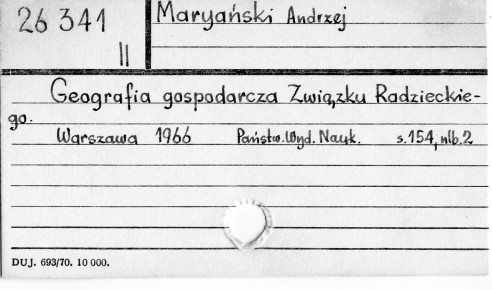 26 341
II
Maryański Andrzej
Geografia gospodarcza Związku Radzieckie-
go.
Warszawa 1966 Państw. Wyd. Nauk. s. 154, nlb. 2
DUJ. 693/70. 10 000.